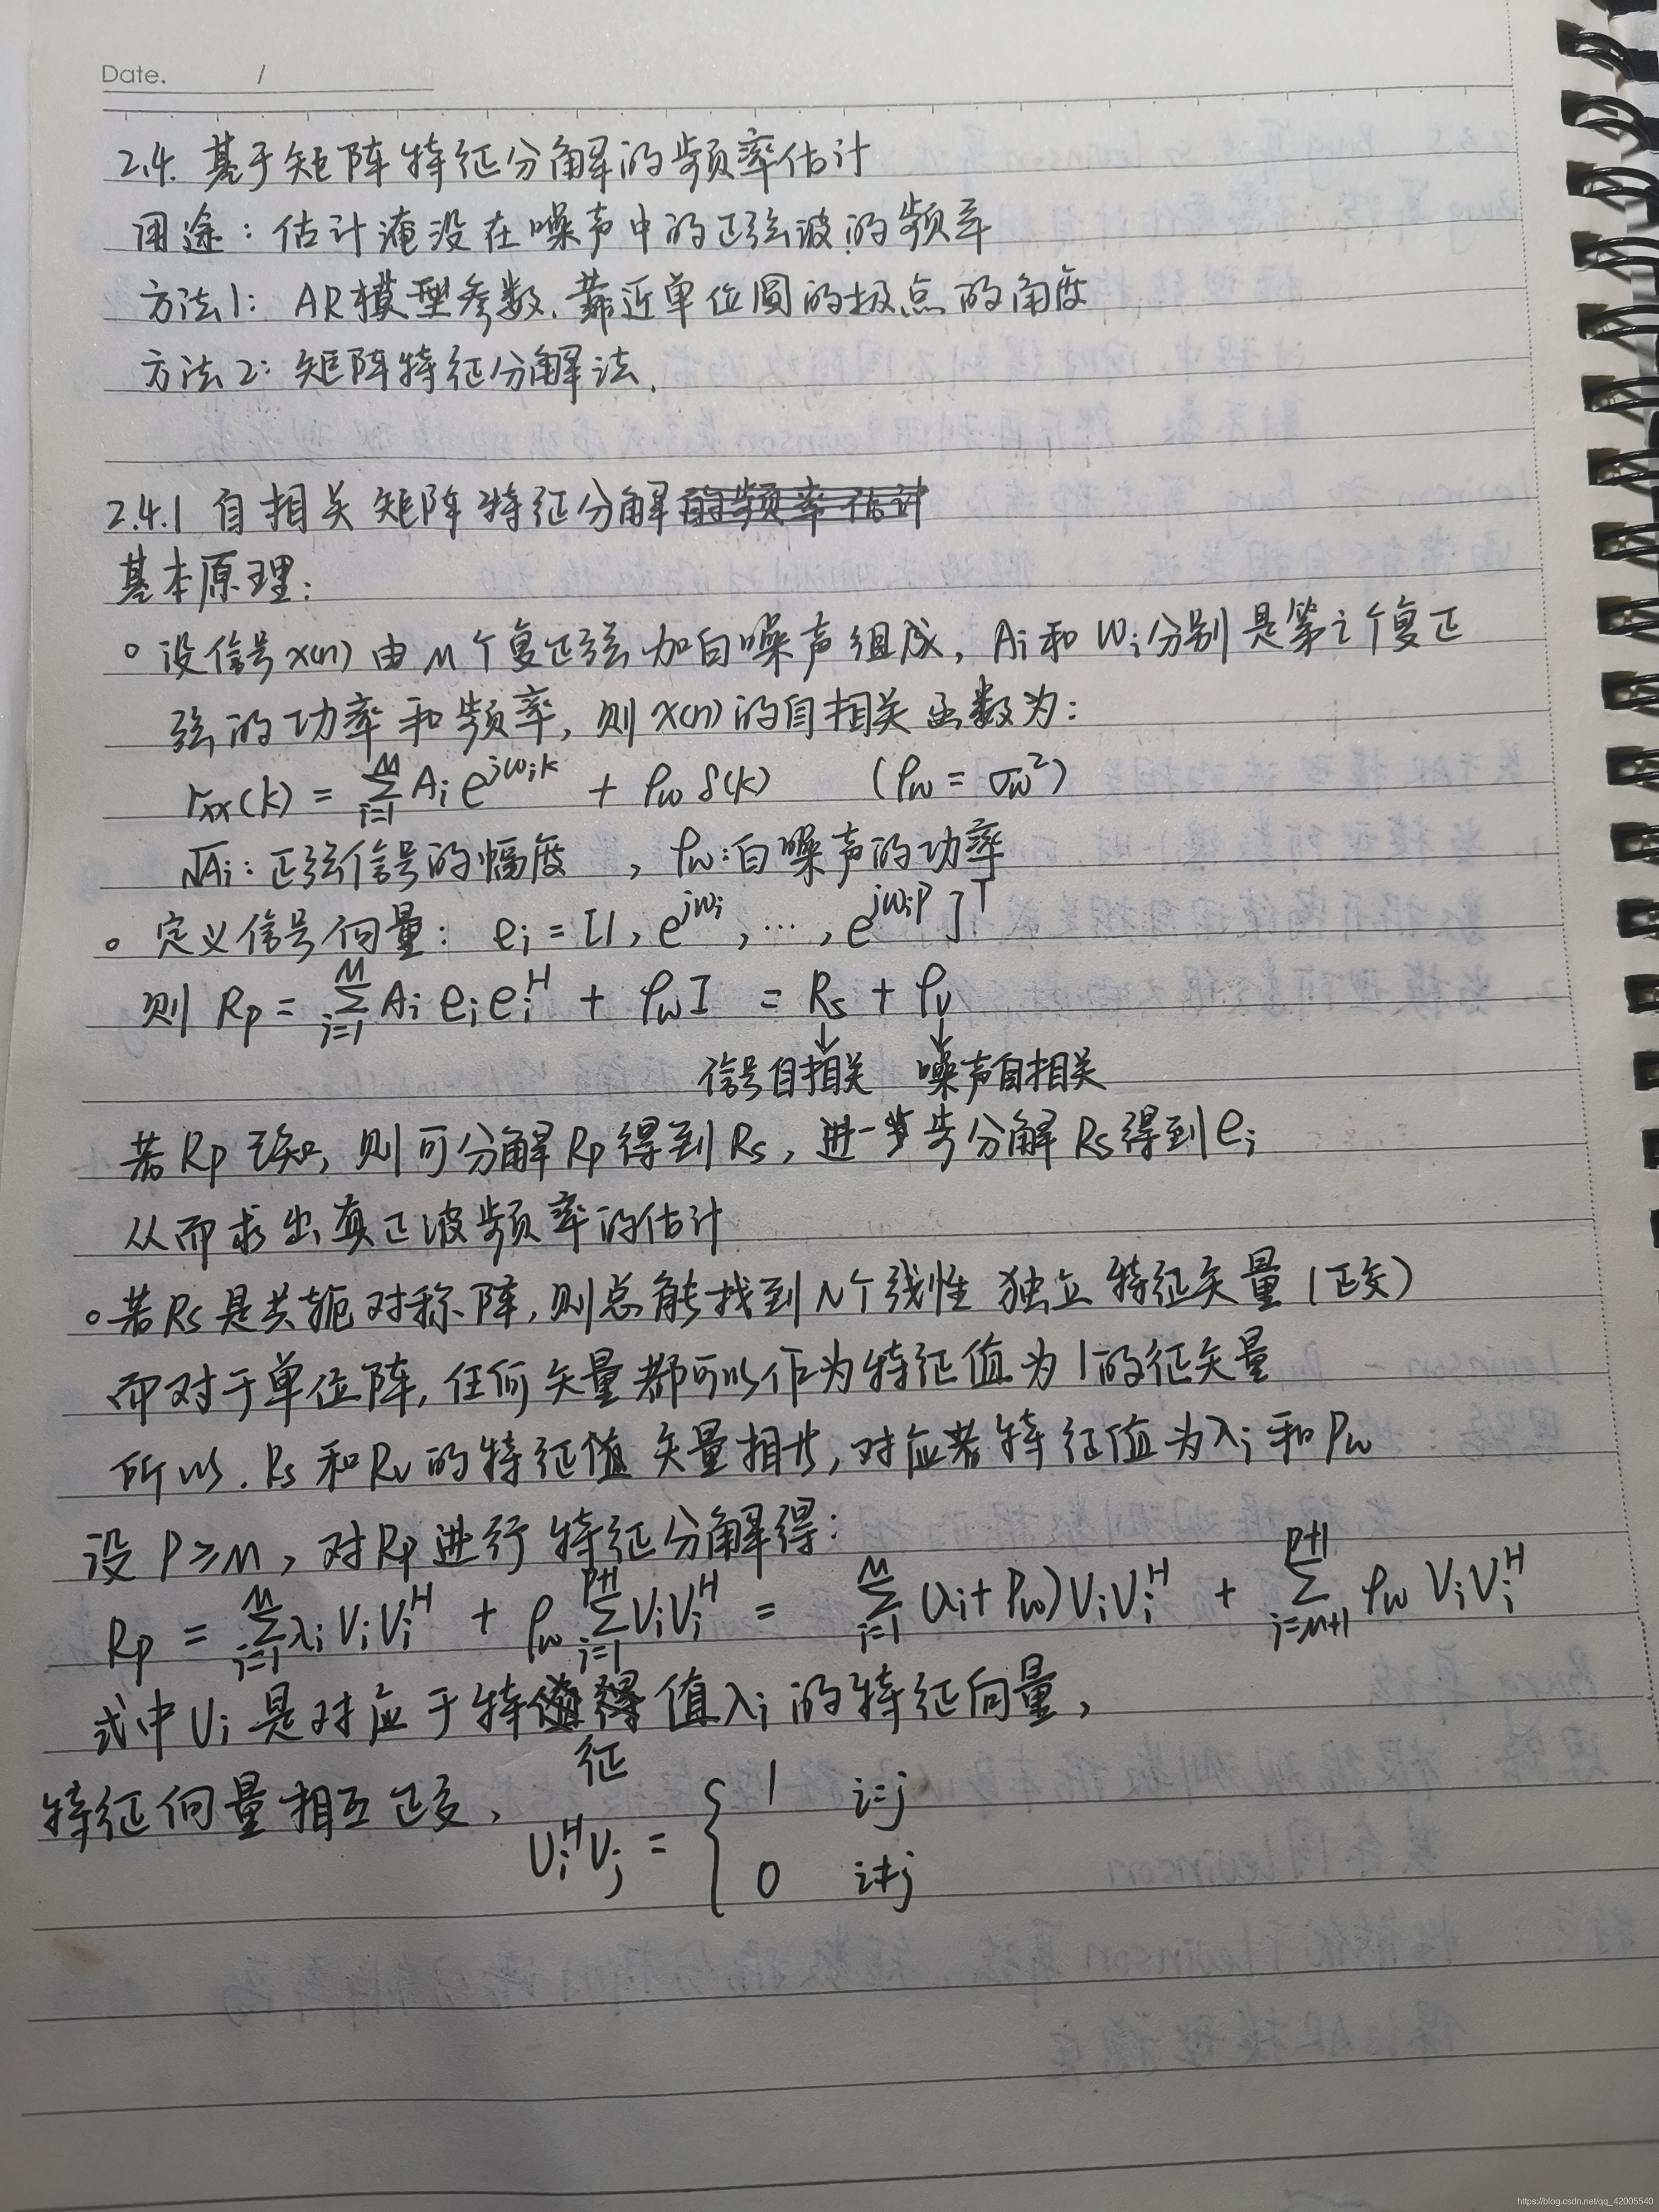 Date. /
2.4. 基于矩阵特征分解的频率估计
用途：估计淹没在噪声中的正弦波的频率
方法1：AR模型参数.靠近单位圆的极点的角度
方法2：矩阵特征分解法.
2.4.1 自相关矩阵特征分解的频率估计
基本原理：
。设信号x(n)由M个复正弦加白噪声组成, Ai和Wi分别是第i个复正
弦的功率和频率, 则x(n)的自相关函数为：
rxx(k) = Σ_{i=1}^{M} Ai e^{jωik} + ρw δ(k) (ρw = σw²)
√Ai：正弦信号的幅度, ρw：白噪声的功率
。定义信号向量：ei = [1, e^{jωi}, ⋯, e^{jωiP}]^T
则 Rp = Σ_{i=1}^{M} Ai ei ei^H + ρw I = Rs + ρv
↓ ↓
信号自相关 噪声自相关
若Rp已知, 则可分解Rp得到Rs, 进一步分解Rs得到ei
从而求出真正波频率的估计
。若Rs是共轭对称阵, 则总能找到N个线性独立特征矢量（正交）
而对于单位阵, 任何矢量都可以作为特征值为1的征矢量
所以. Rs和Rv的特征值矢量相共, 对应若特征值为λi和ρw
设 P≥M, 对Rp进行特征分解得：
Rp = Σ_{i=1}^{M} λi Vi Vi^H + ρw Σ_{i=1}^{P+1} Vi Vi^H = Σ_{i=1}^{M} (λi+ρw) Vi Vi^H + Σ_{i=M+1}^{P+1} ρw Vi Vi^H
式中Vi是对应于特值λi的特征向量,
征
特征向量相互正交,
Vi^H Vj = { 1 i=j
0 i≠j
https://blog.csdn.net/qq_42005540